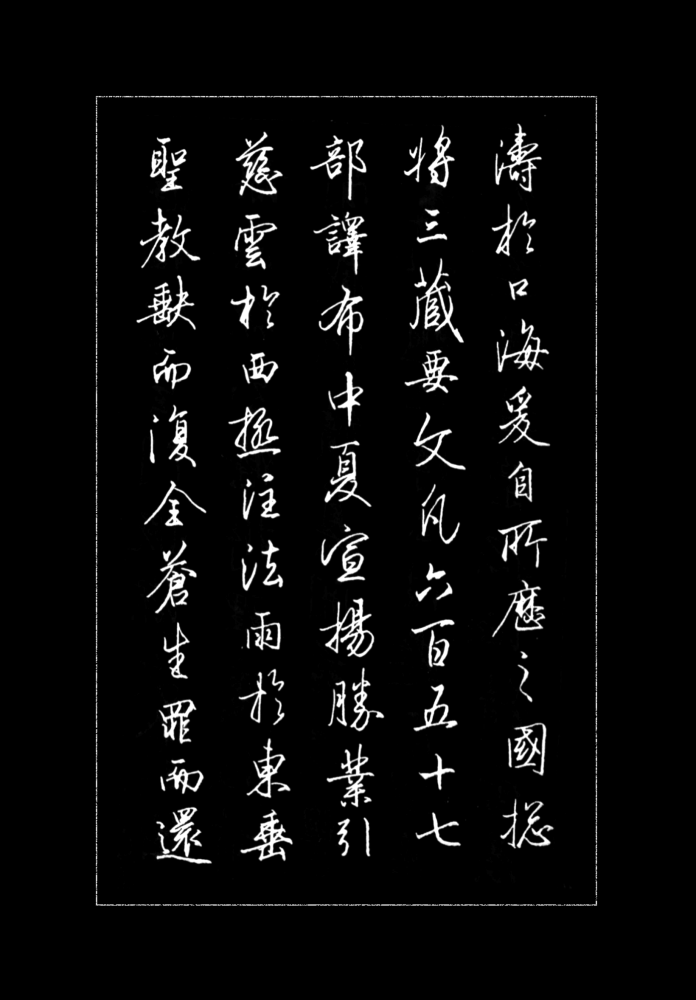 濤於口海爰自所歷之國揔
將三藏要文凡六百五十七
部譯布中夏宣揚勝業引
慈雲於西極注法雨於東垂
聖教缺而復全蒼生罪而還